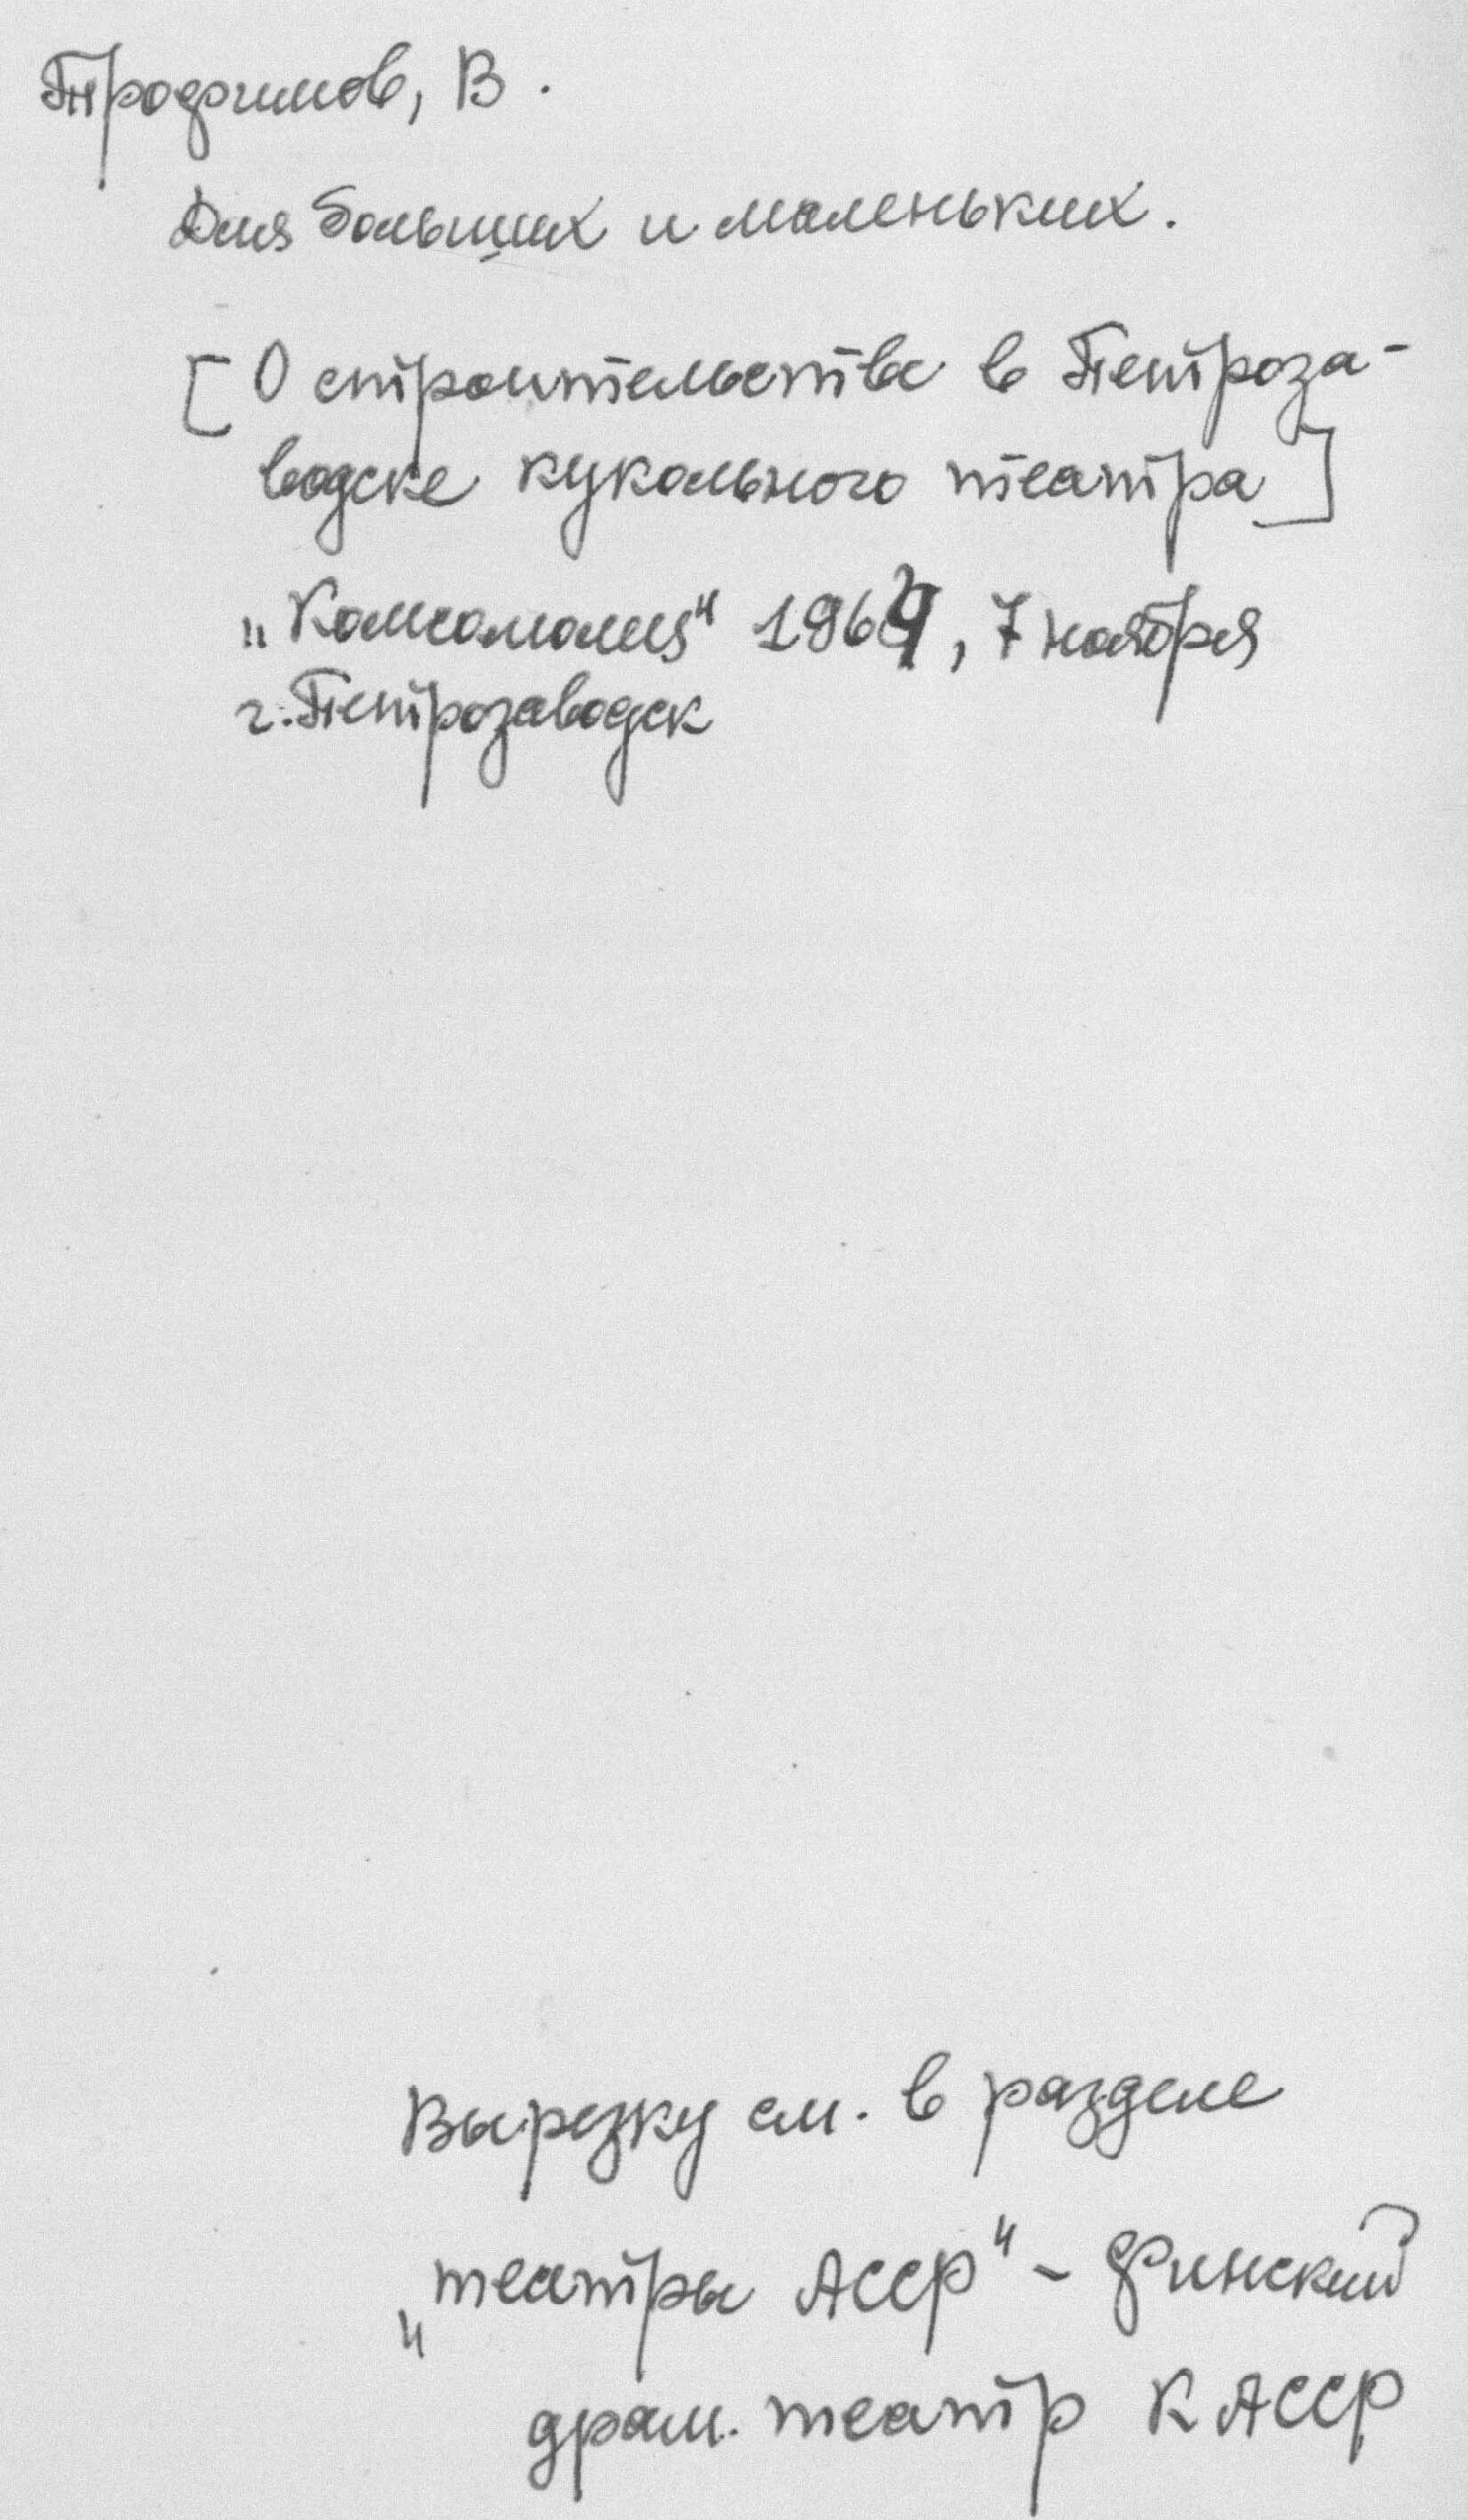 Трофимов, В.
Для больших и маленьких.
[О строительстве в Петроза-
водске кукольного театра]
„Комсомолец" 1964, 7 ноября
г. Петрозаводск
Вырезку см. в разделе
„театры АССР" - Финский
драм. театр КАССР